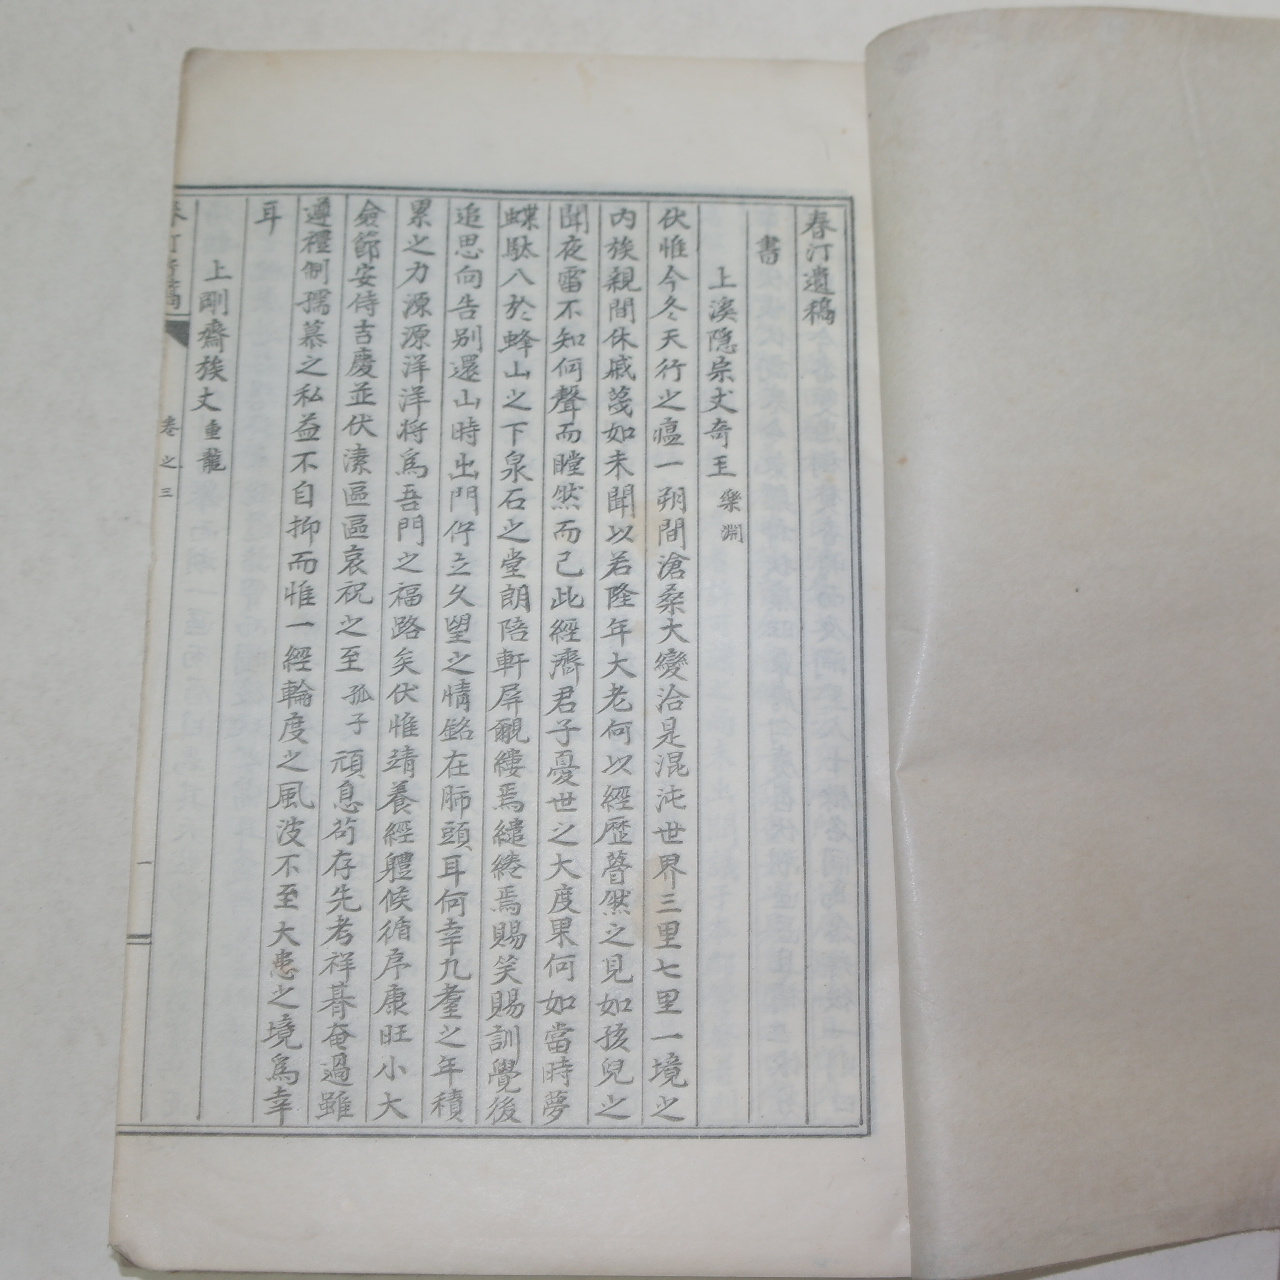 春汀遺稿
書
上溪隱宗丈奇玉 樂淵
伏惟今冬天行之瘟一朔間滄桑大變洽是混沌世界三里七里一境之
內族親間休戚蔑如未聞以若隆年大老何以經歷瞢然之見如孩兒之
聞夜雷不知何聲而瞠然而已此經濟君子憂世之大度果何如當時夢
蝶馱八於蜂山之下泉石之堂朗陪軒屛覼縷焉繾綣焉賜笑賜訓覺後
追思向告別還山時出門佇立久望之情銘在肺頭耳何幸九耋之年積
累之力源源洋洋將爲吾門之福路矣伏惟靖養經軆候循序康旺小大
僉節安侍吉慶並伏溸區區哀祝之至孤子頑息苟存先考祥朞奄過雖
遵禮制孺慕之私益不自抑而惟一經輪度之風波不至大患之境爲幸
耳
上剛齋族丈重龍
春汀遺稿 卷之三 一